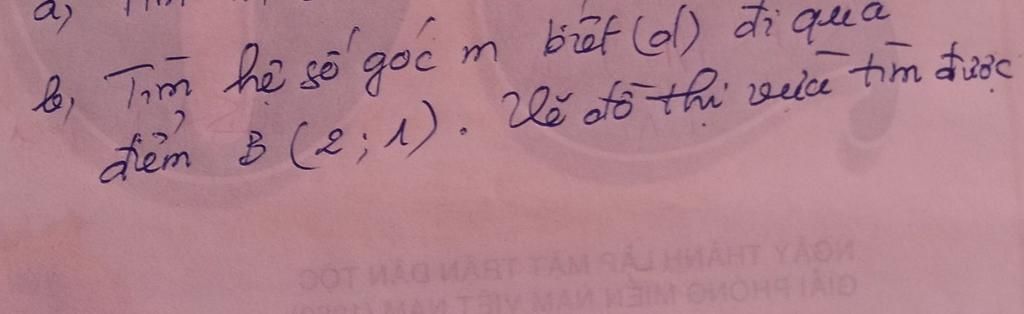 a,
b, Tìm hệ số góc m biết (d) đi qua
điểm B (2 ; 1). Vẽ đồ thị vừa tìm được
NGÀY THÀNH LẬP MẶT TRẬN DÂN TỘC
GIẢI PHÓNG MIỀN NAM VIỆT NAM